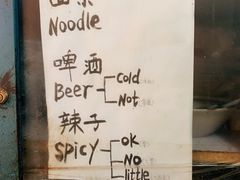 Noodle
啤酒
Beer cold
Not
辣子
Spicy ok
No
little